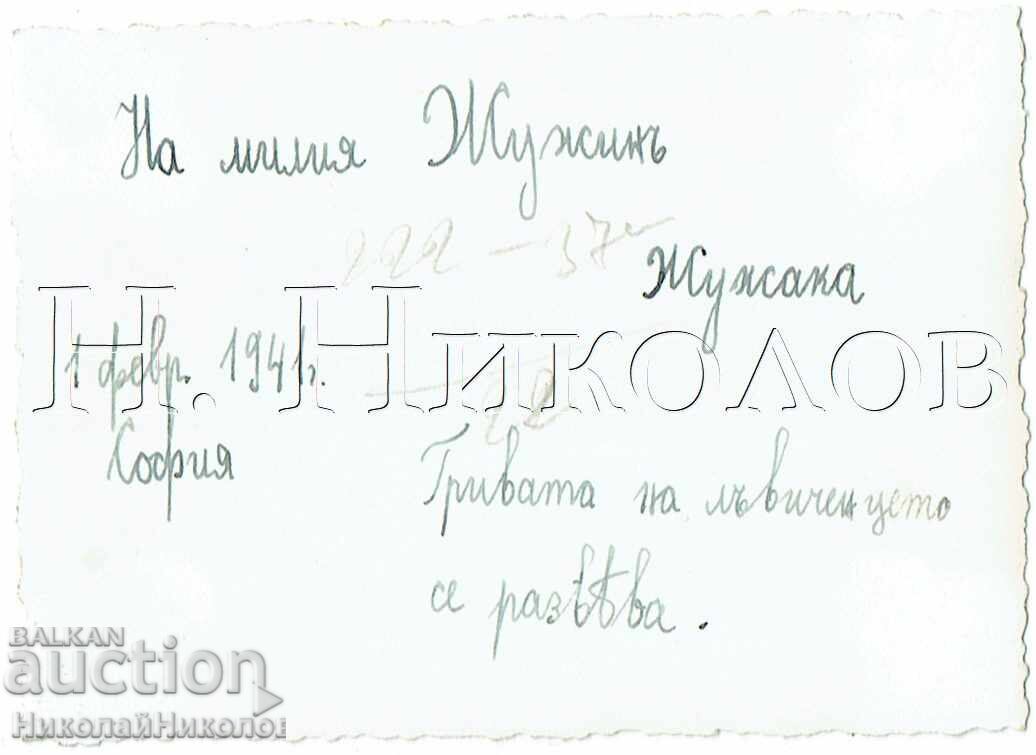 На милия Жужинъ
222 - 37
Жужака
Н. Николов
1 февр. 1941 г.
22
София
Гривата на лъвиченцето
се развѣва.
BALKAN
auction
НиколайНиколов